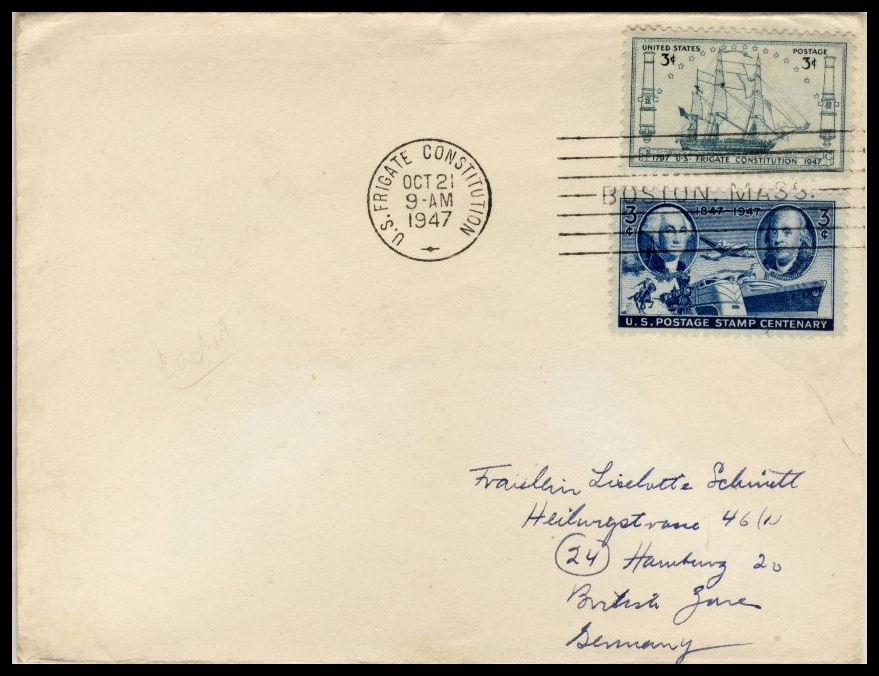 UNITED STATES POSTAGE
3¢ 3¢
1797 U.S. FRIGATE CONSTITUTION 1947
U.S. FRIGATE CONSTITUTION
OCT 21
9-AM
1947
BOSTON, MASS.
1847-1947
3¢ 3¢
U.S. POSTAGE STAMP CENTENARY
Fraulein Liselotte Schmidt
46
(24) Hamburg 20
British Zone
Germany